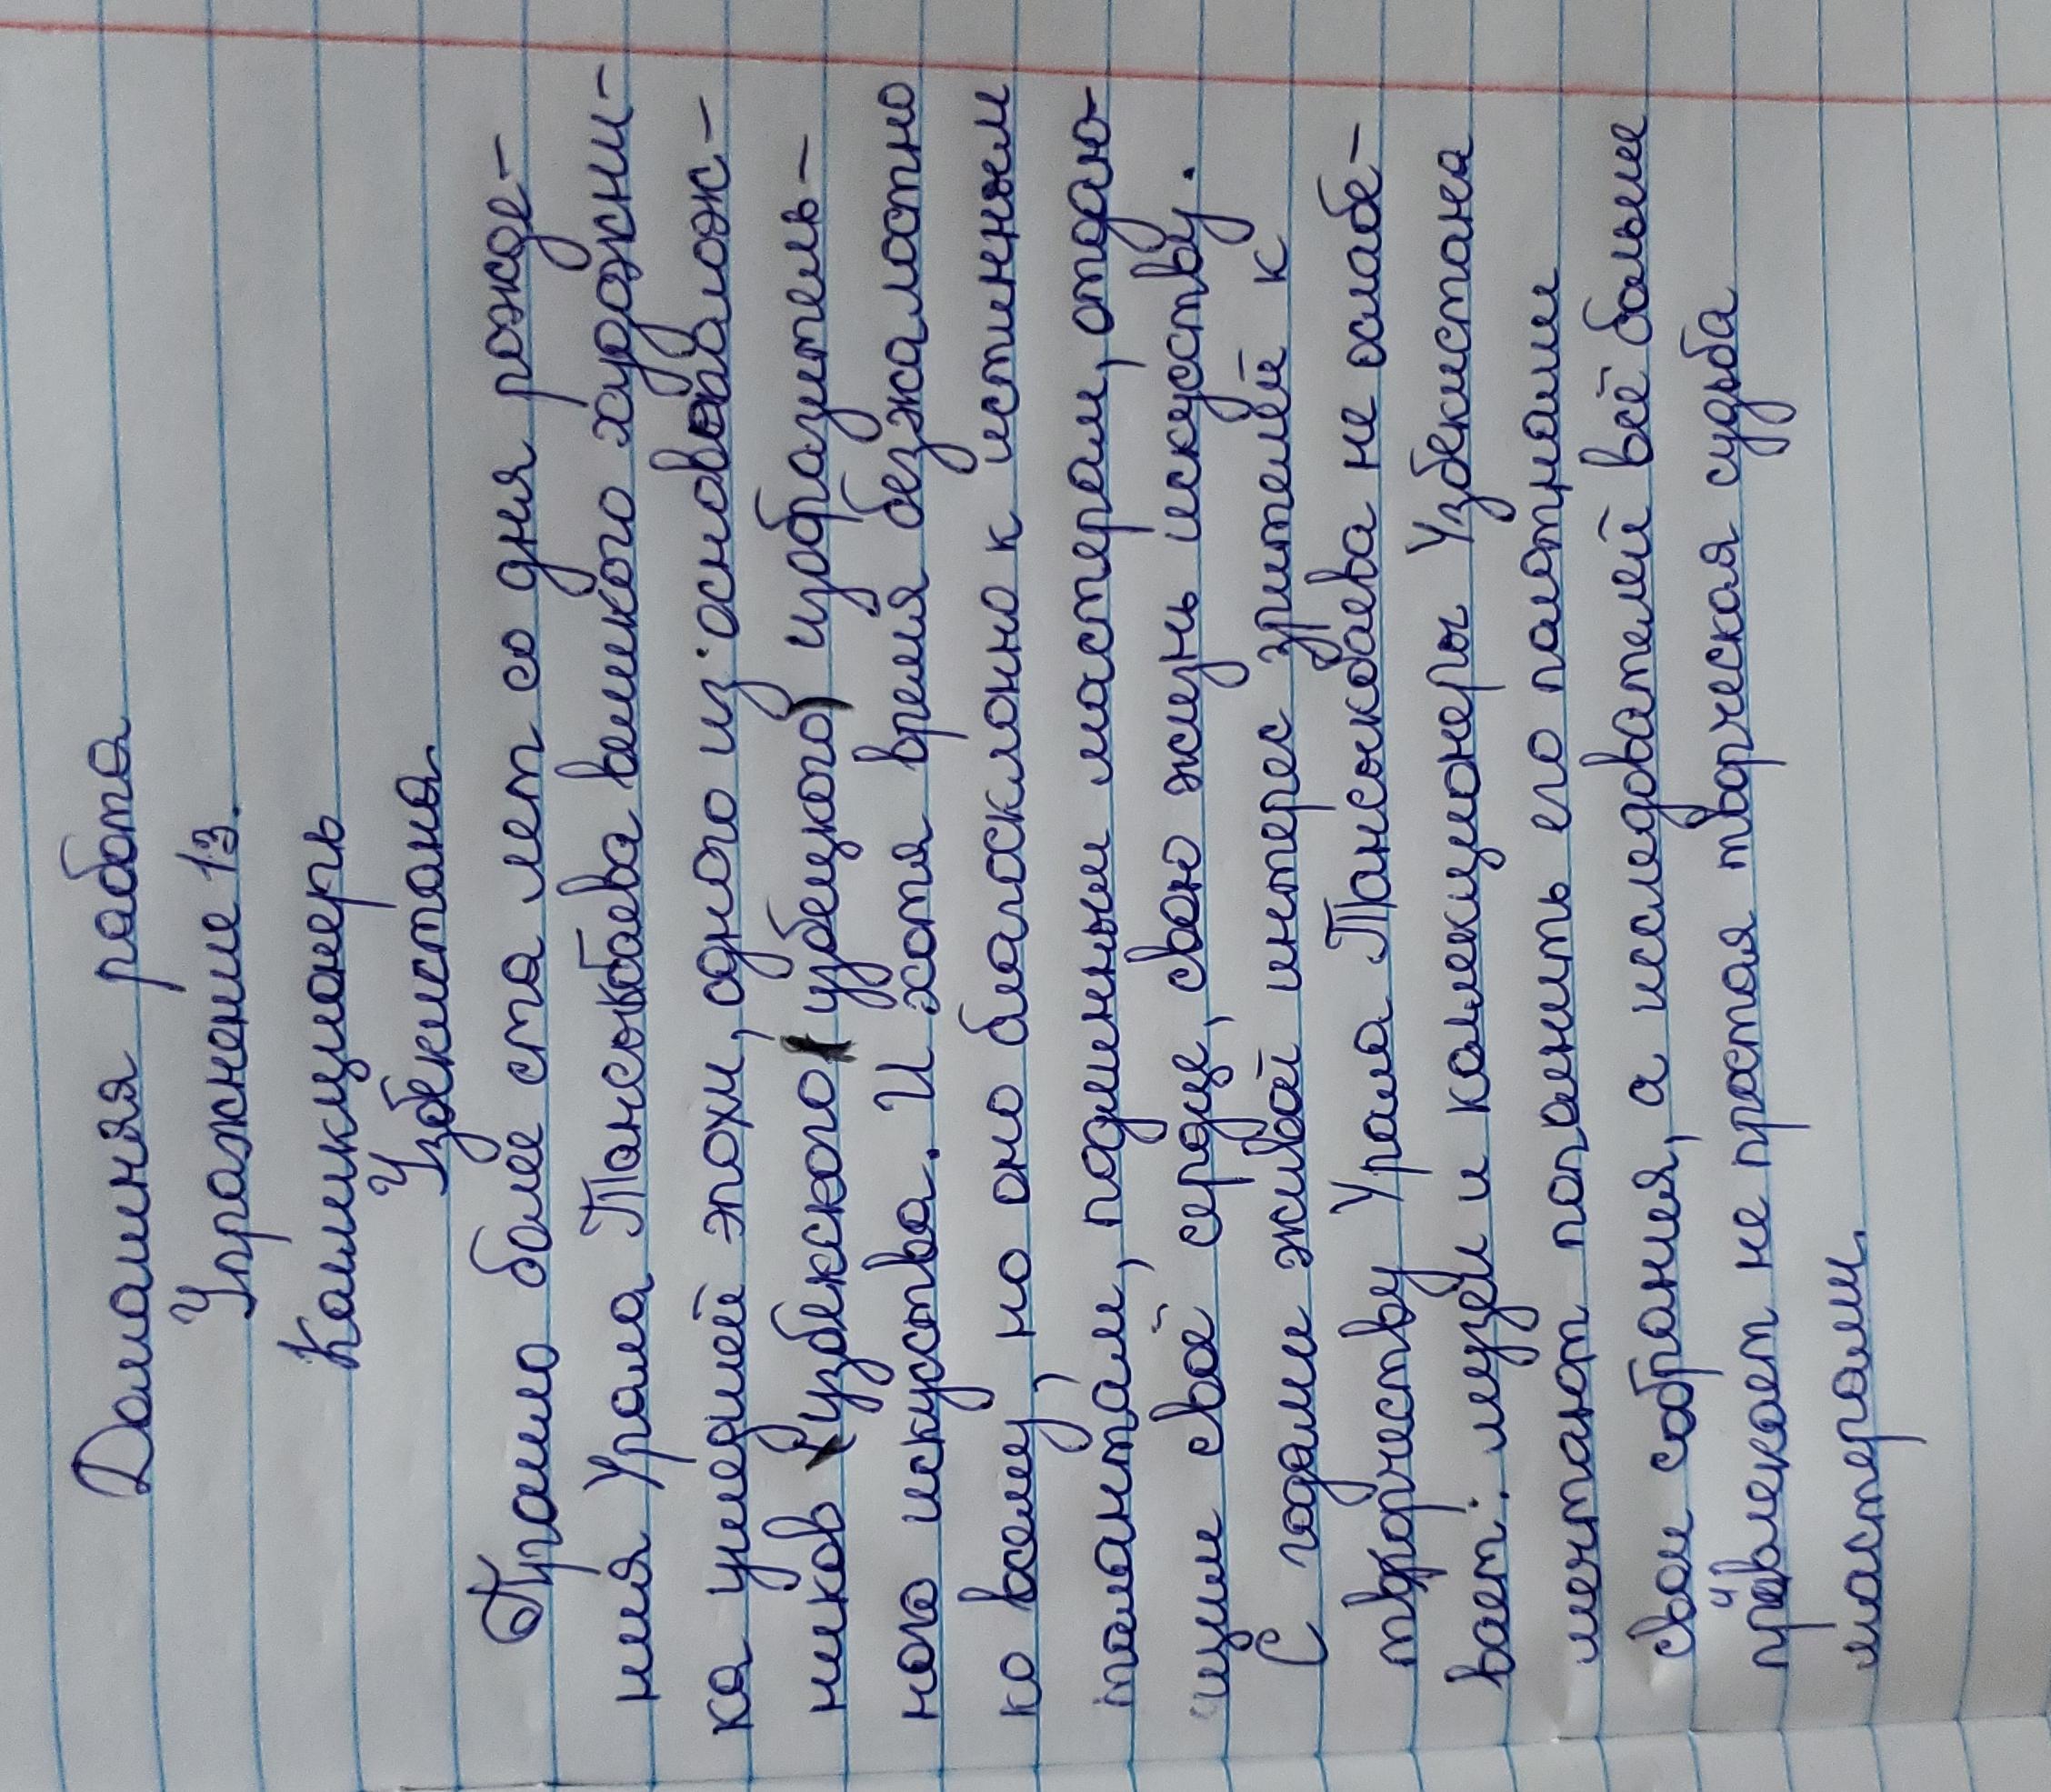 Домашняя работа
Упражнение 13.
Каликционерь
Узбекистана
Прошло более ста лет со дня рожде-
ния Урала Тансыкбаева великого художни-
ка ушедшей эпохи, одного из основоалож-
ников (узбекского) (узбецкого) изобразитель-
ного искуства. И хотя время безжалостно
ко всему, но оно благосклонно к истинным
талантам, подлинным мастерам, отдаю-
щим своё сердце, свою жизнь искуству.
С годами живой интерес зрителей к
творчеству Урала Тансыкбаева не ослабе-
вает: музеи и колекционеры Узбекистана
мечтают пополнить его полотнами
свои собрания, а иследователей всё больше
привлекает не простая творческая судьба
мастерами.